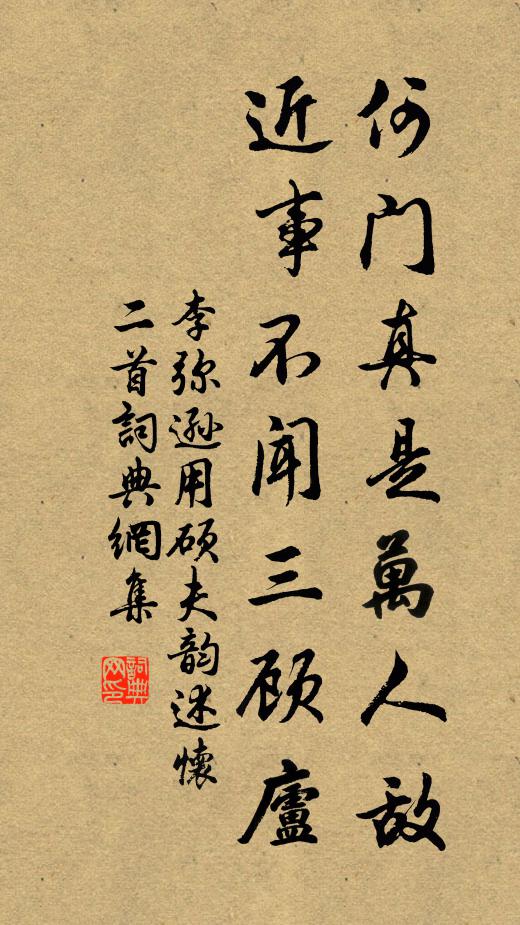 何门真是萬人敌
近事不闻三顾廬
李弥遜用硕夫韵述懷
二首詞典網集
詞典网印